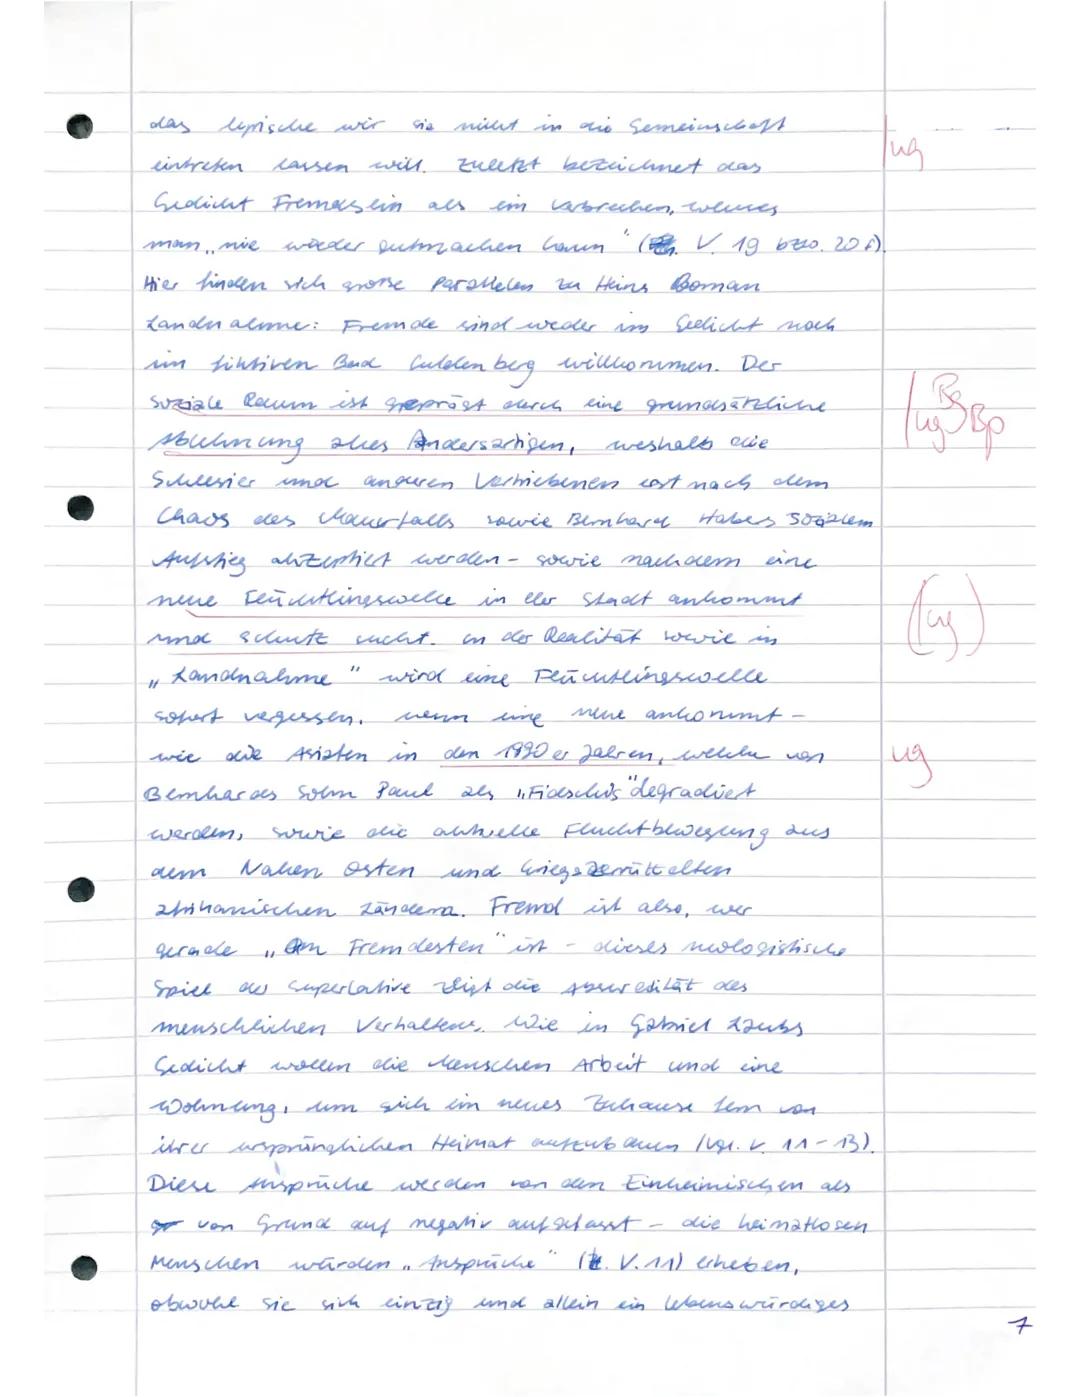 das lyrische wir sie nicht in die Gemeinschaft
eintreten lassen will. Zuletzt bezeichnet das
ug
Gedicht Fremdsein als ein Verbrechen, welches
man „nie wieder gutmachen kann" (V. 19 bzw. 20f).
Hier finden sich große Parallelen zu Heins Roman
Landnahme: Fremde sind weder im Gedicht noch
im fiktiven Bad Guldenberg willkommen. Der
soziale Raum ist geprägt durch eine grundsätzliche
ug Bg Bp
Ablehnung alles Andersartigen, weshalb die
Schlesier und anderen Vertriebenen erst nach dem
Chaos des Mauerfalls sowie Bernhard Habers sozialem
Aufstieg akzeptiert werden - sowie nachdem eine
neue Flüchtlingswelle in der Stadt ankommt
(ug)
und Schutz sucht. In der Realität sowie in
„Landnahme" wird eine Flüchtlingswelle
sofort vergessen, wenn eine neue ankommt -
wie die Asiaten in den 1990er Jahren, welche von
ug
Bernhardes Sohn Paul als „Fidschis" degradiert
werden, sowie die aktuelle Fluchtbewegung aus
dem Nahen Osten und kriegszerrüttelten
afrikanischen Ländern. Fremd ist also, wer
gerade „Am Fremdesten" ist - dieses neologistische
Spiel der Superlative zeigt die Absurdität des
menschlichen Verhaltens. Wie in Gabriel Laubs
Gedicht wollen die Menschen Arbeit und eine
Wohnung, um sich ein neues Zuhause fern von
ihrer ursprünglichen Heimat aufzubauen (vgl. V. 11-13).
Diese Ansprüche werden von den Einheimischen als
von Grund auf negativ aufgefasst - die heimatlosen
Menschen würden „Ansprüche" (V. 11) erheben,
obwohl sie sich einzig und allein ein lebenswürdiges
7